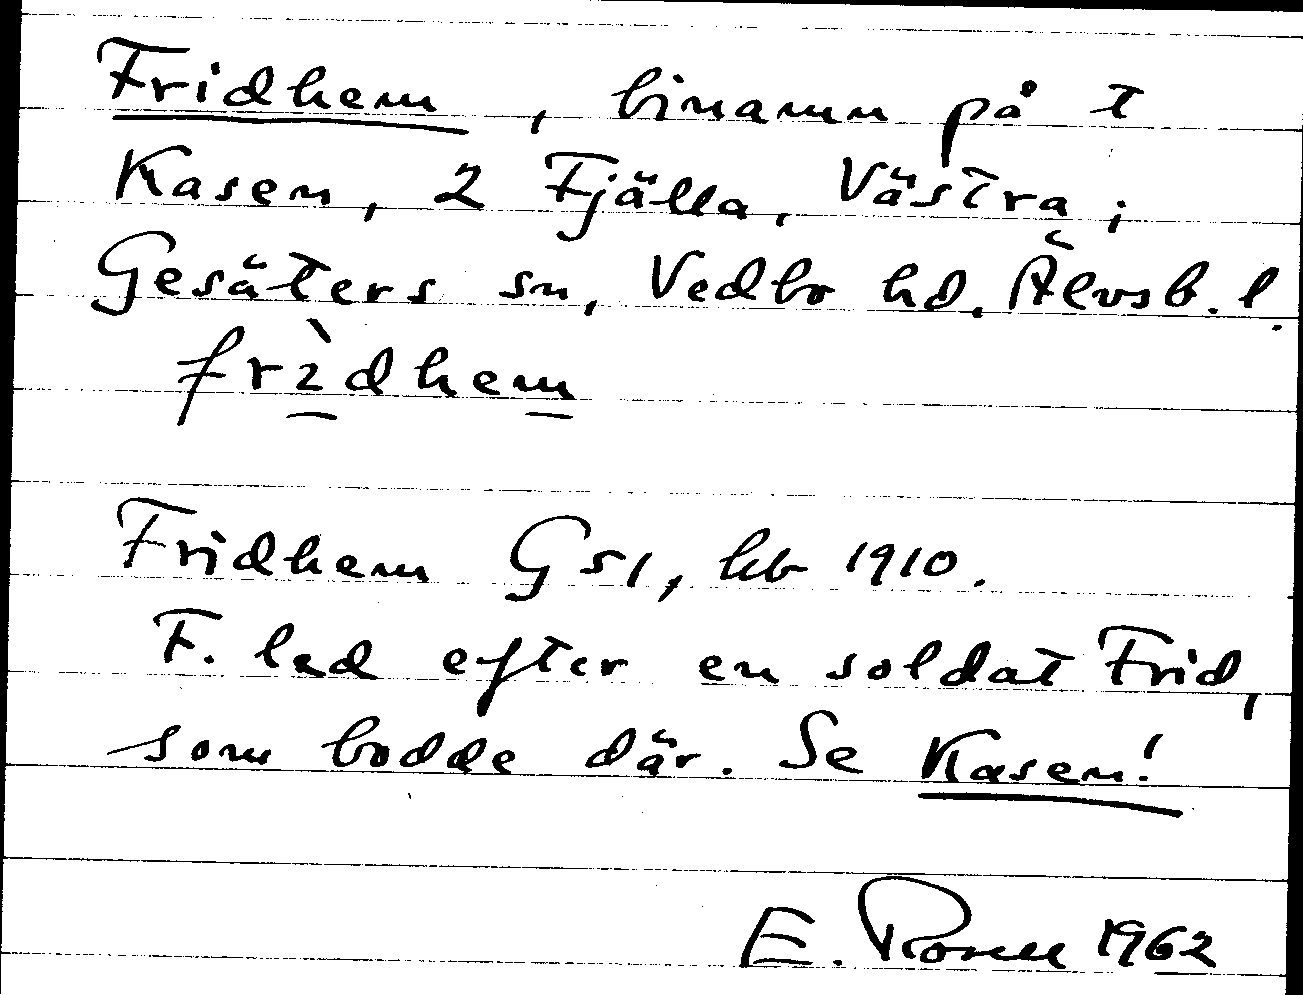 Fridhem, binamn på t
Kasen, 2 Fjälla, Västra;
Gesäters sn, Vedbo hd, Älvsb. l.
frìdhem
Fridhem Gs1, hb 1910.
F. led efter en soldat Frid,
som bodde där. Se Kasen!
E. 1962